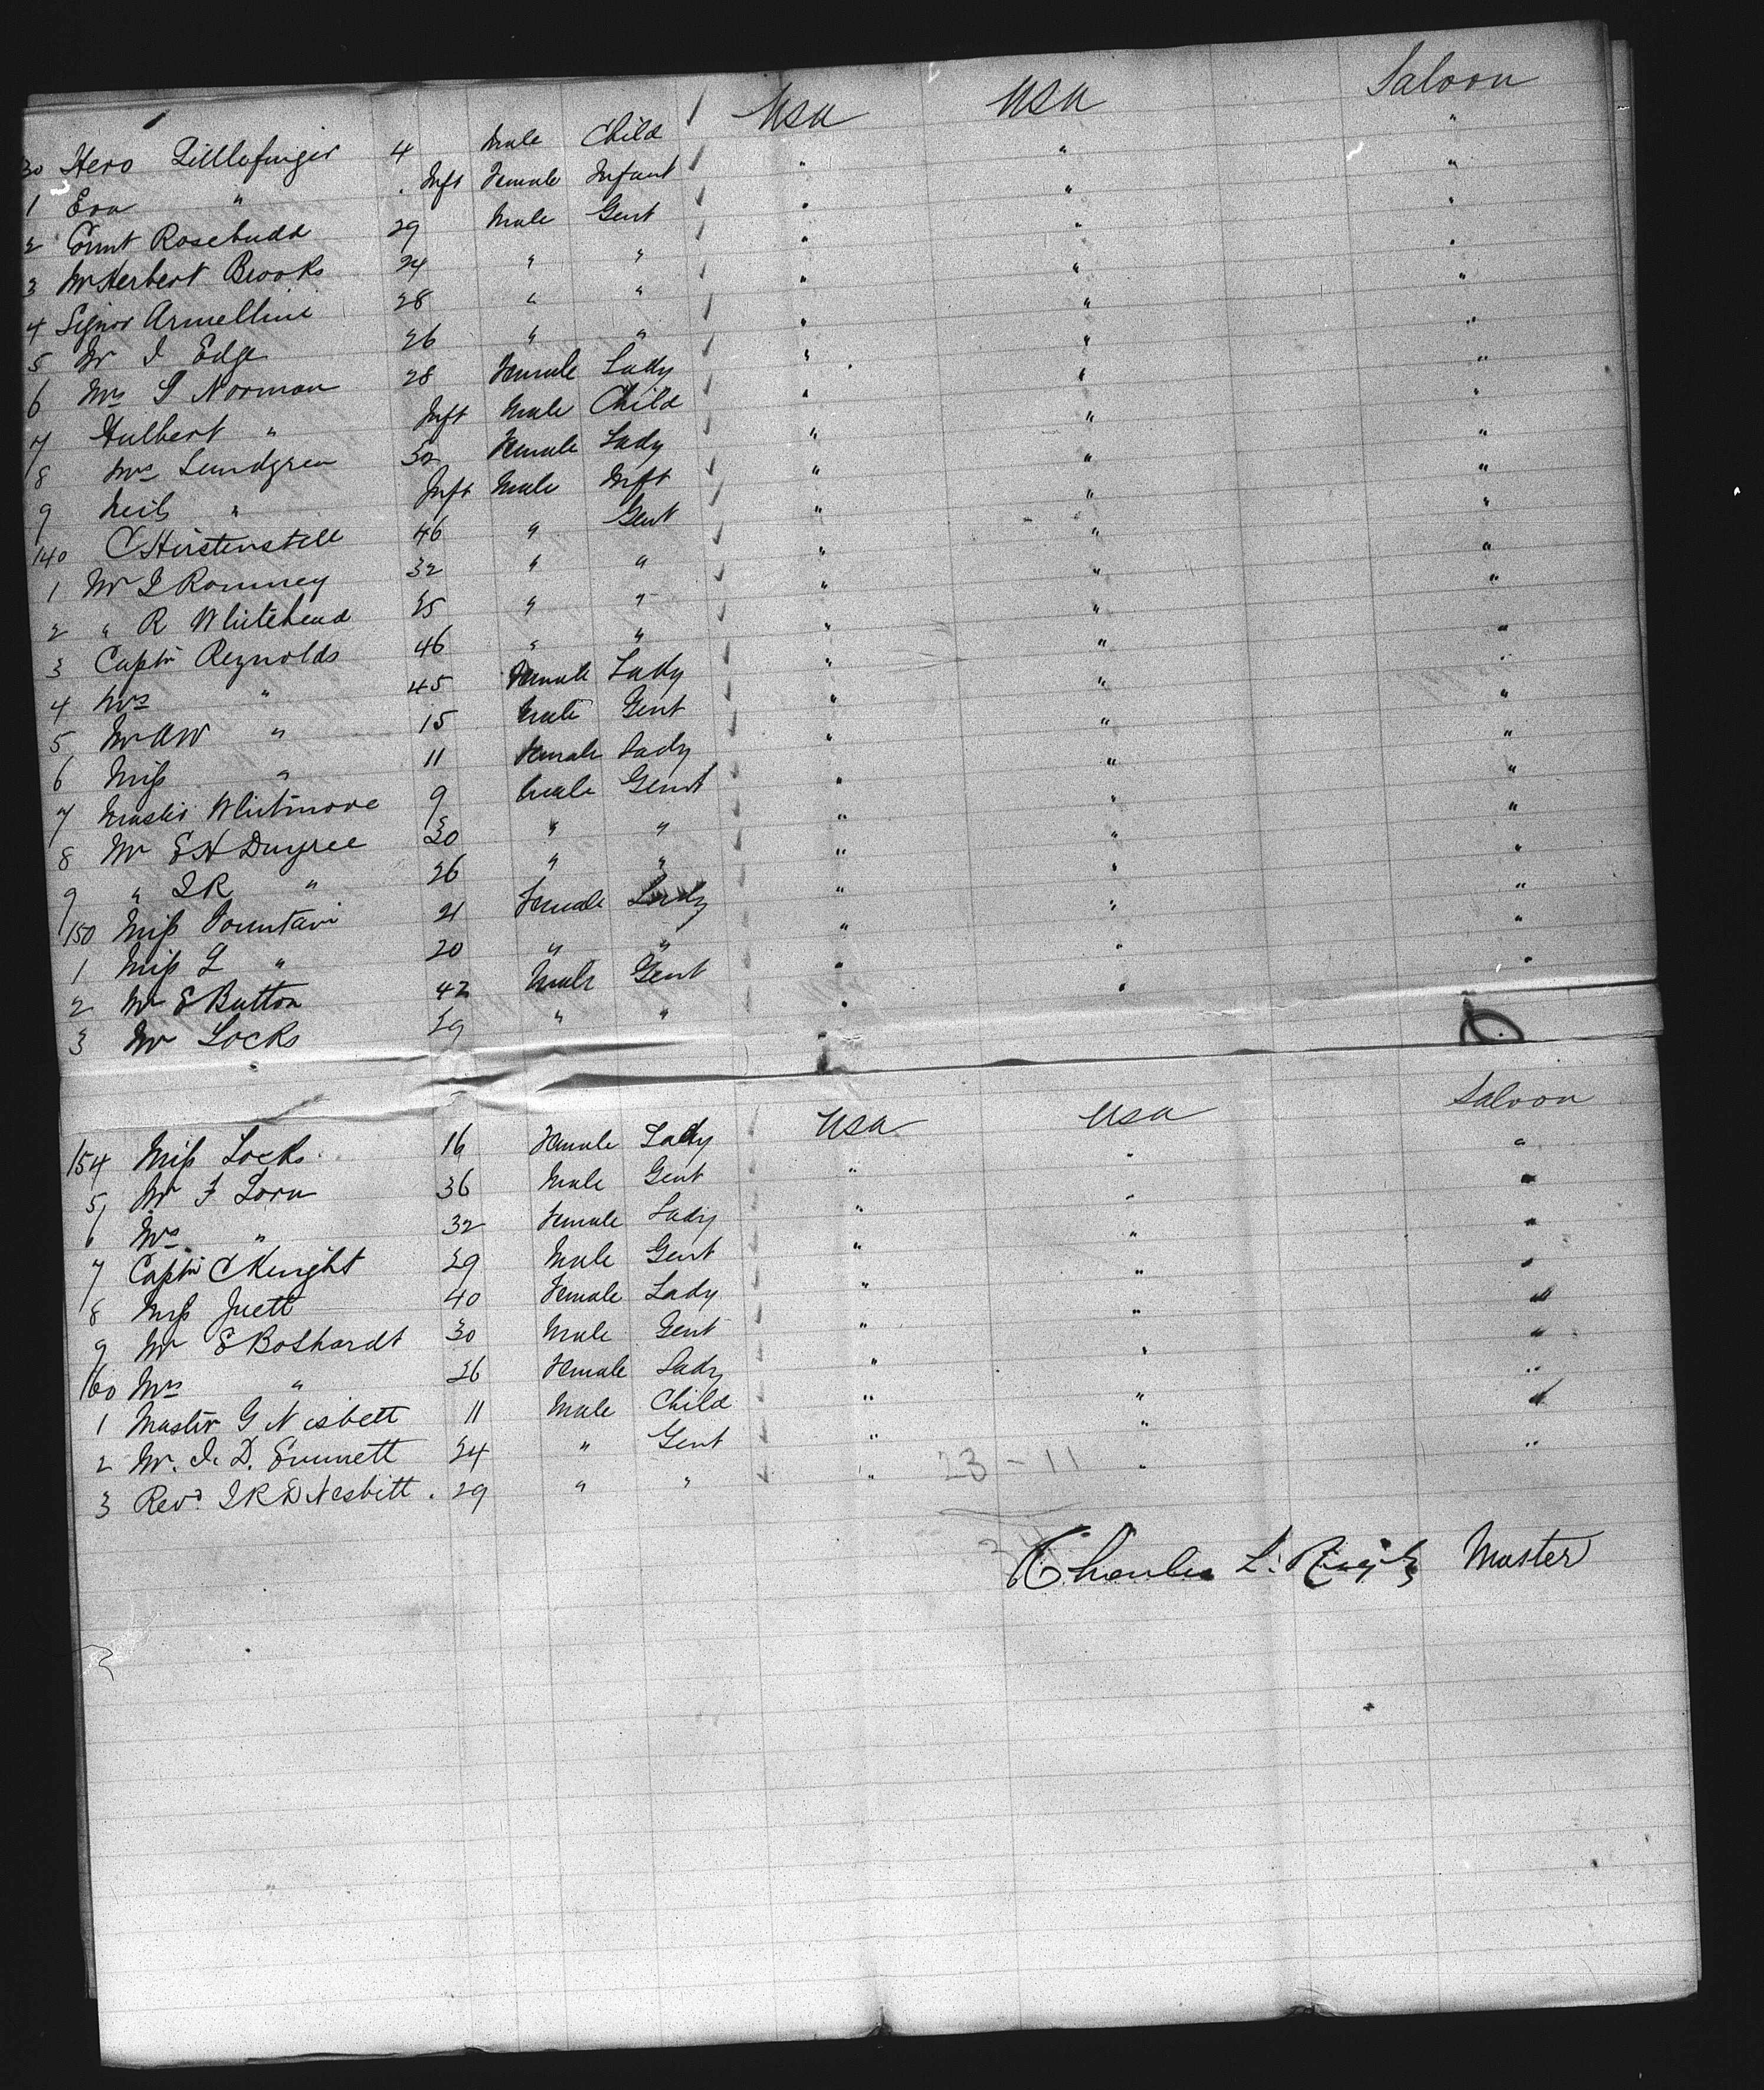 30 Hero Littlefinger 4 Male Child USA USA Saloon
1 Eva " Inft Female Infant " " "
2 Count Rosebudd 29 Male Gent " " "
3 Mr Herbert Brooks 24 " " " " "
4 Signor Armellini 28 " " " " "
5 Mr I Edge 26 " " " " "
6 Mrs S Norman 28 Female Lady " " "
7 Hulbert " Inft Male Child " " "
8 Mrs Lundgren 32 Female Lady " " "
9 Neils " Inft Male Inft " " "
140 C Hirstenstell 46 " Gent " " "
1 Mr I Romney 32 " " " " "
2 " R Whitehead 25 " " " " "
3 Captn Reynolds 46 " " " " "
4 Mrs " 45 Female Lady " " "
5 Mr AW " 15 Male Gent " " "
6 Miss " 11 Female Lady " " "
7 Master Whitmore 9 Male Gent " " "
8 Mr E H 30 " " " " "
9 " I R " 26 " " " " "
150 Miss Fountain 21 Female Lady " " "
1 Miss L " 20 " " " " "
2 Mr E Button 42 Male Gent " " "
3 Mr Locks 29 " " " " "
154 Miss Locks 16 Female Lady USA USA Saloon
5 Mr F Lorn 36 Male Gent " " "
6 Mrs " 32 Female Lady " " "
7 Captn C Knight 29 Male Gent " " "
8 Miss Juett 40 Female Lady " " "
9 Mr E Boshardt 30 Male Gent " " "
160 Mrs " 26 Female Lady " " "
1 Master G Nisbett 11 Male Child " " "
2 Mr. I. D. Emmett 24 " Gent " " "
3 Revd. I R D Nesbitt. 29 " " " " "
23 - 11
Charles L. Master